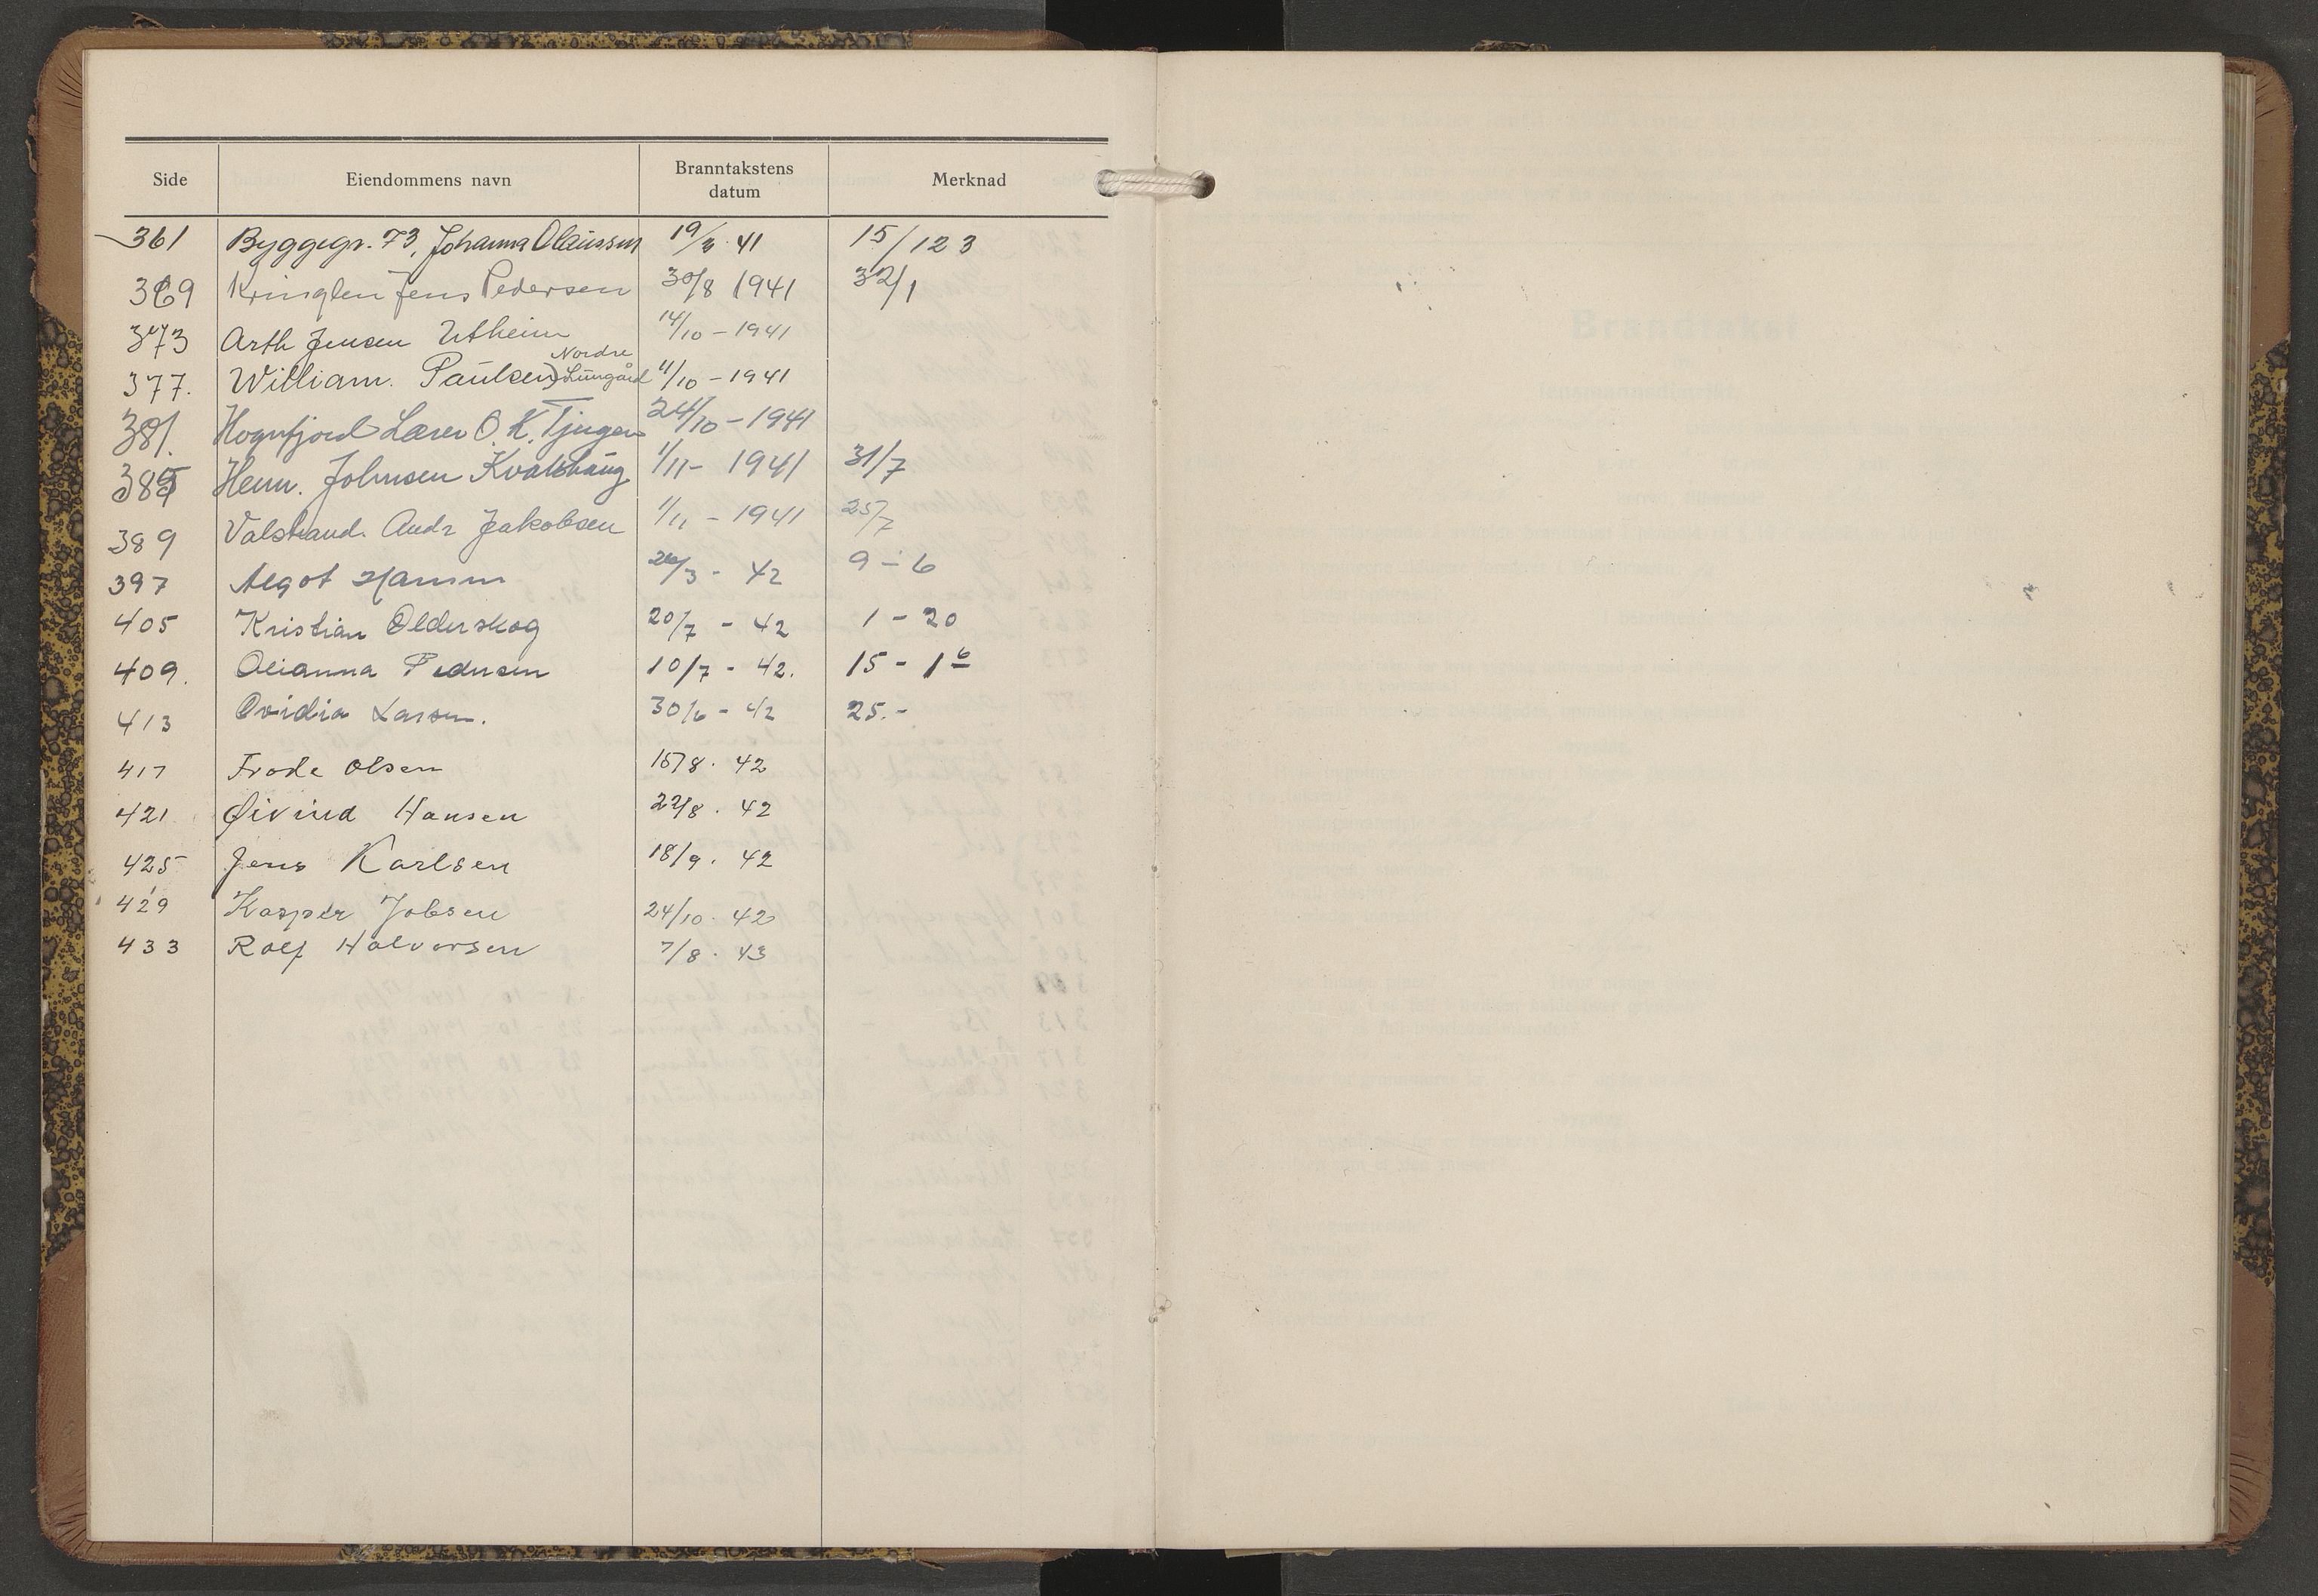 Side Eiendommens navn Branntakstens datum Merknad
361 Byggegr. 73, Johanna Olaussen 19/3 41 15/123
369 Kringlen Jens Pedersen 30/8 1941 32/1
373 Arth Jensen Utheim 14/10 - 1941
377. William. Paulsen) Nordre Lungård 11/10 - 1941
381. Hognfjord Lærer O. K. Tjugen 24/10 - 1941
385 Henr. Johnsen Kvalshaug 1/11 - 1941 31/7
389 Valstrand. Andr Jakobsen 1/11 - 1941 25/7
397 Algot Hamm 26/3 - 42 9 - 6
405 Kristian Olderskog 20/7 - 42 1 - 20
409. Olianna Pedersen 10/7 - 42. 15 - 16
413 Ovidia Larsen. 30/6 - 42 25. -
417 Frode Olsen 15/8. 42
421 Øivind Hansen 22/8. 42
425 Jens Karlsen 18/9. 42
429 Kasper Jobsen 24/10. 42
433 Rolf Halvorsen 7/8. 43
Brandtakst